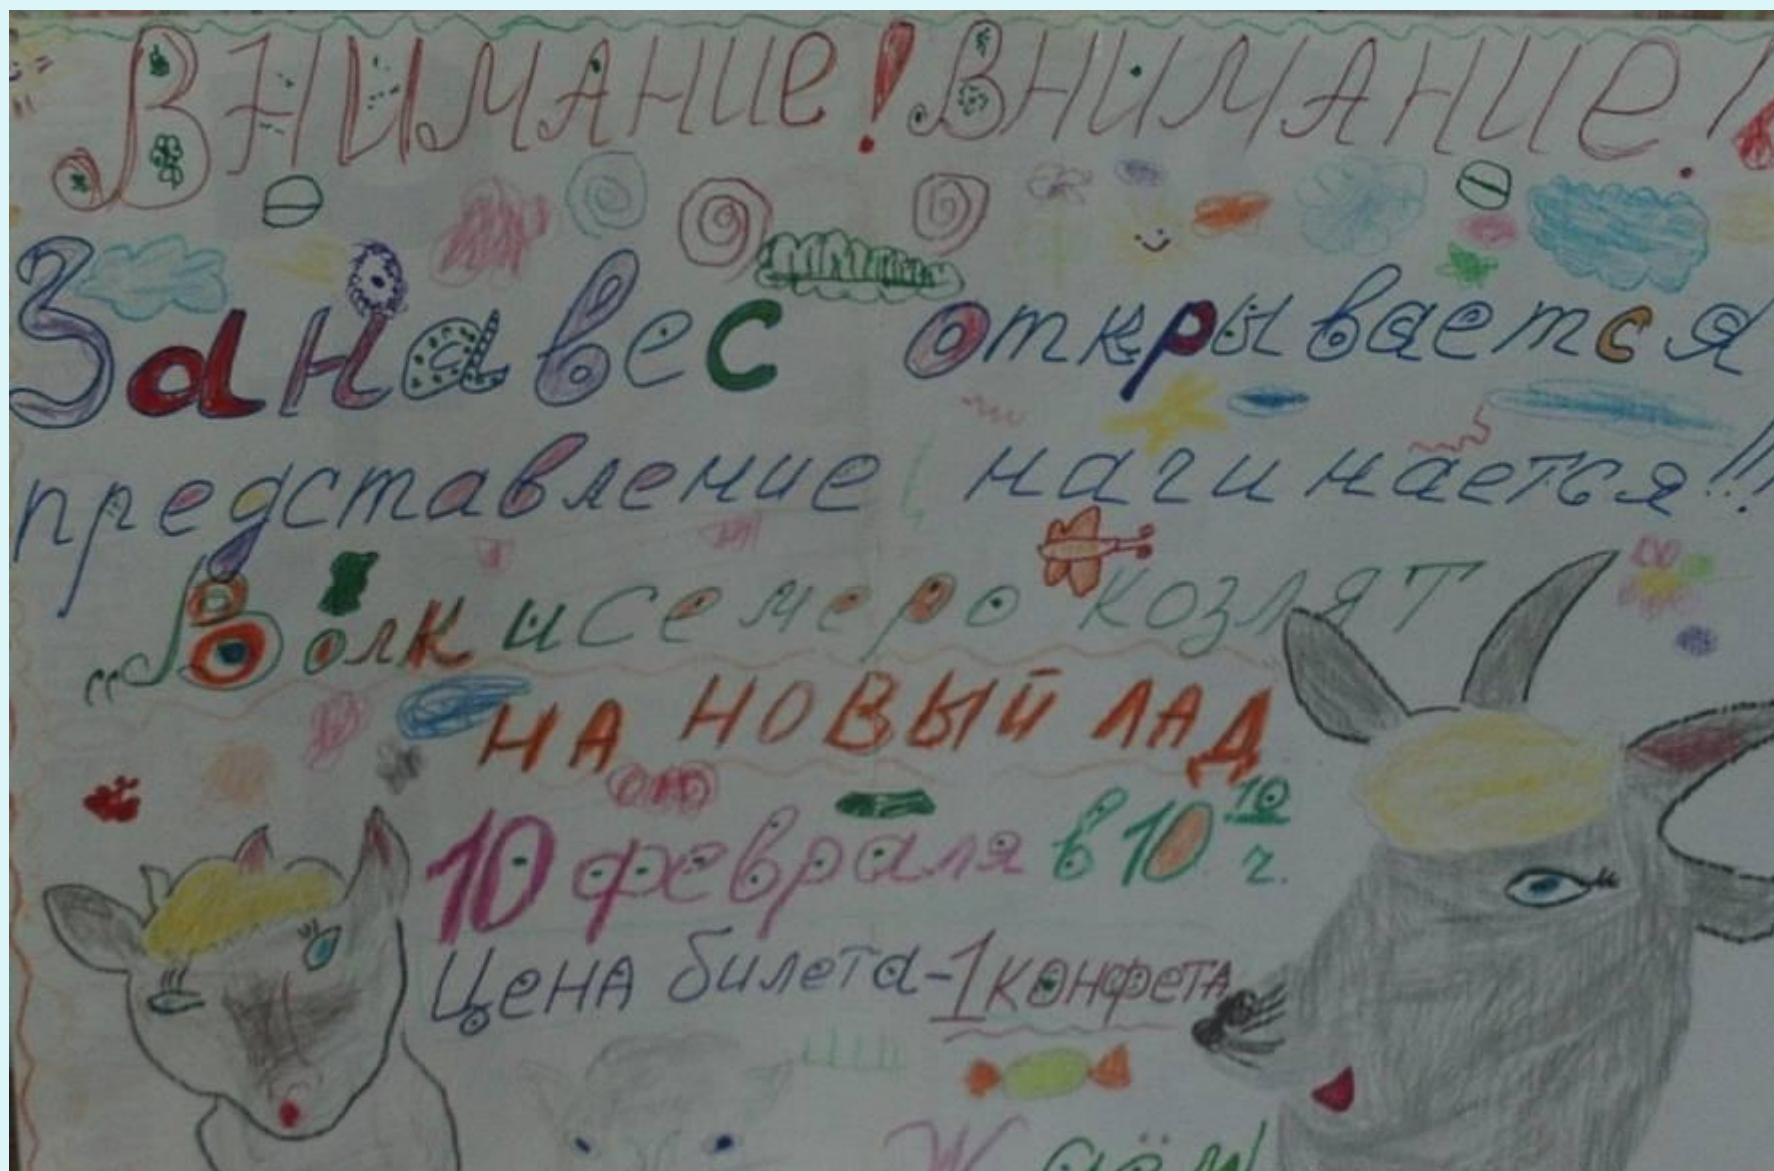 Внимание! Внимание!
Занавес открывается
представление начинается!!!
"Волк и семеро козлят
на новый лад
10 февраля в 10 10 ч.
Цена билета-1 конфета
Ждём